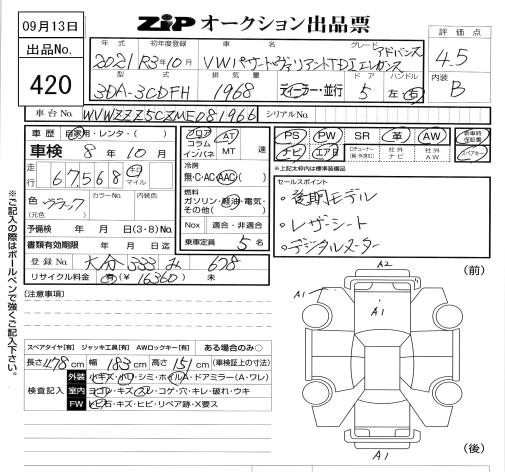 09月13日
出品No.
420
ZIP オークション出品票
評価点
4.5
内装
B
年式 初年度登録 車名 グレード アドバンス
2021 R3年10月 VWパサートヴァリアントTDIエレガンス
型式 排気量 ドア ハンドル
3DA-3CDFH 1968 ディーラー・並行 5 左・右
車台No. WVWZZZ3CZME081966 シリアルNo.
車歴 自家用・レンタ・( )
車検 8年 10月
走行 67,568 キロ マイル
色 ブラック カラーNo. 内装色
(元色)
予備検 年 月 日(3・8)No.
書類有効期限 年 月 日迄
登録No. 大分 333 み 678
リサイクル料金 有(¥ 16360) 未
フロア コラム インパネ
AT MT 速
冷房
無・C・AC・AAC( )
燃料
ガソリン・軽油・電気・その他( )
Nox 適合・非適合
乗車定員 5名
PS PW SR 革 AW 新車時保証書
ナビ エアB Dチューナー(純・外含む) 社外ナビ 社外AW スペアキー
※上記太枠内は標準装備品
セールスポイント
・後期モデル
・レザーシート
・デジタルメーター
※ご記入の際はボールペンで強くご記入下さい。
[注意事項]
スペアタイヤ[有] ジャッキ工具[有] AWロックキー[有] ある場合のみ○
長さ 478cm 幅 183cm 高さ 151cm (車検証上の寸法)
検査記入
外装 小キズ・小凹・シミ・ホイルA・ドアミラー(A・ワレ)
室内 ヨゴレ・キズ・スレ・コゲ・穴・キレ・破れ・ウキ
FW トビ石・キズ・ヒビ・リペア跡・X要ス
A2
(前)
A1
A1
A1
(後)